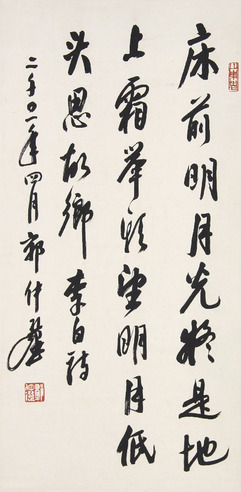 床前明月光疑是地
上霜举頭望明月低
头思故鄉 李白詩
二千〇一年四月 郭